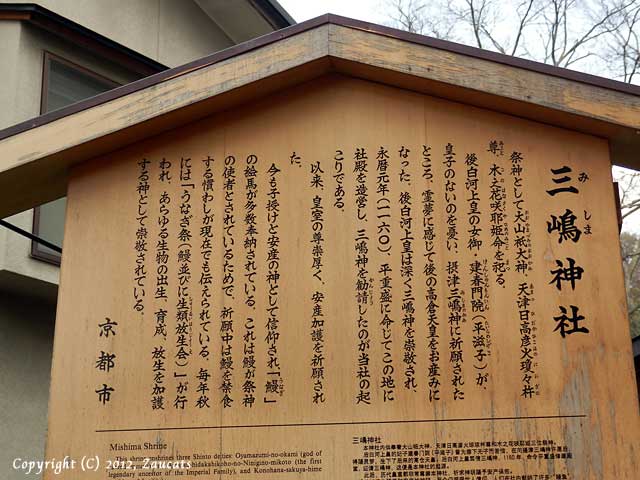 三嶋神社
みしま
祭神として大山祇大神、天津日高彦火瓊々杵
尊、木之花咲耶姫命を祀る。
後白河上皇の女御・建春門院（平滋子）が、
皇子のないのを憂い、摂津三嶋神に祈願された
ところ、霊夢に感じて後の高倉天皇をお産みに
なった。後白河上皇は深く三嶋神を崇敬され、
永暦元年（一一六〇）、平重盛に命してこの地に
社殿を造営し、三嶋神を勧請したのが当社の起
こりである。
以来、皇室の尊崇厚く、安産加護を祈願され
た。
今も子授けと安産の神として信仰され「鰻」
の絵馬が多数奉納されている。これは鰻が祭神
の使者とされているためで、祈願中は鰻を禁食
する慣わしが現在でも伝えられている。毎年秋
には「うなぎ祭（鰻並びに生類放生会）」が行
われ、あらゆる生物の出生、育成、放生を加護
する神として崇敬されている。
京都市
Mishima Shrine
This shrine enshrines three Shinto deities: Oyamazumi-no-okami (god of
hidakahikoho-no-Ninigino-mikoto (the first
legendary ancestor of the Imperial Family), and Konohana-sakuya-hime
三嶋神社
Copyright (C) 2012, Zaucats